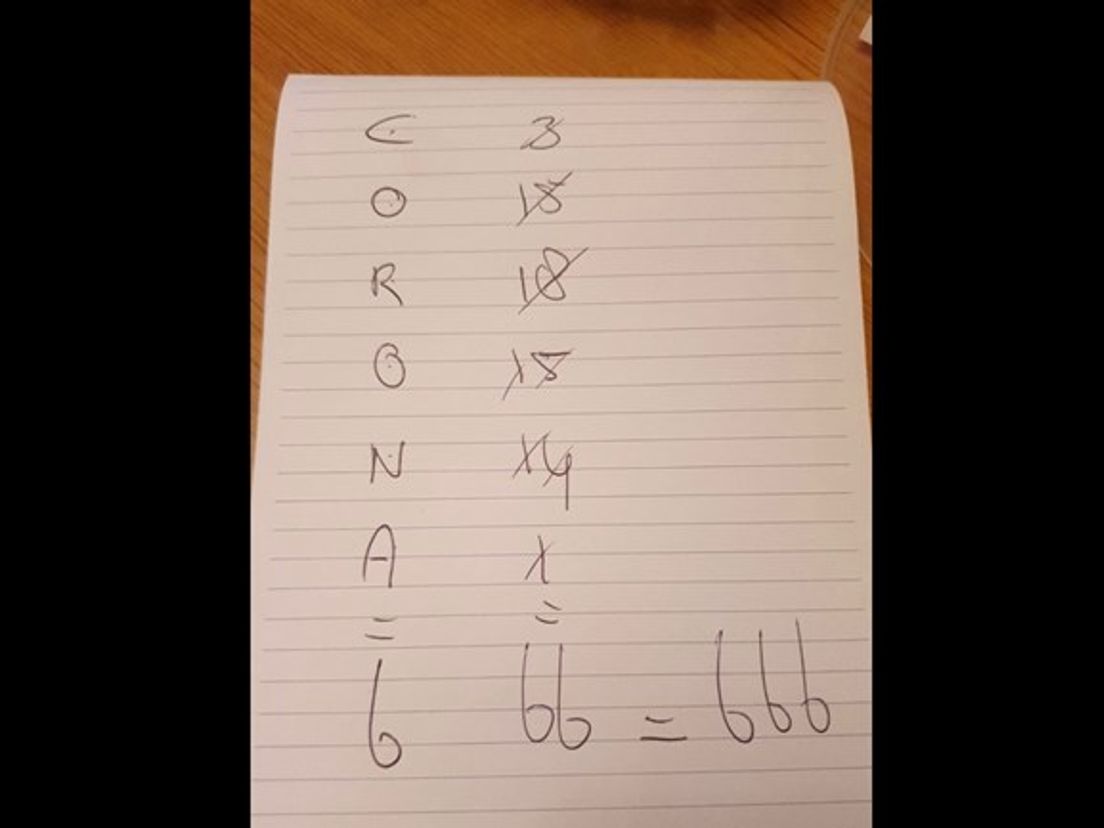 C 3
O 15
R 18
O 15
N 14
A 1
= =
6 66 = 666